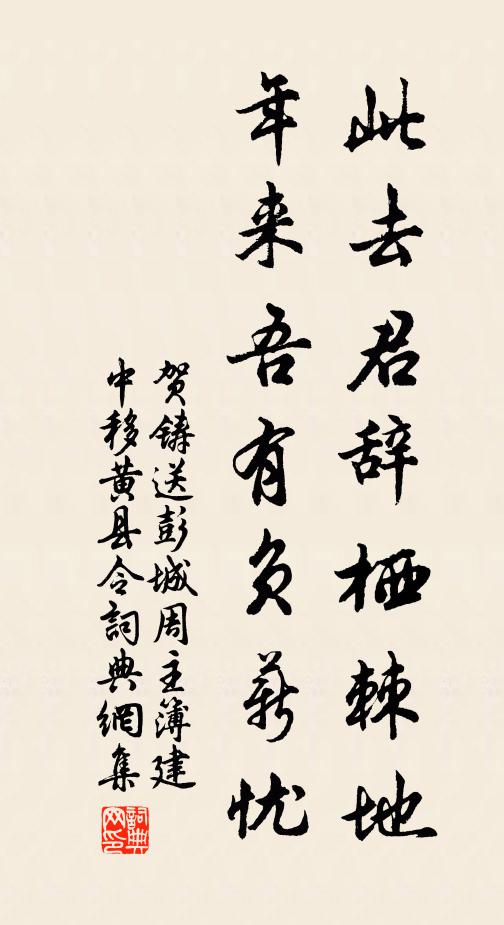 此去君辞栖棘地
年来吾有负薪忧
贺铸送彭城周主簿建
中移黄县令词典网集
词典
网印